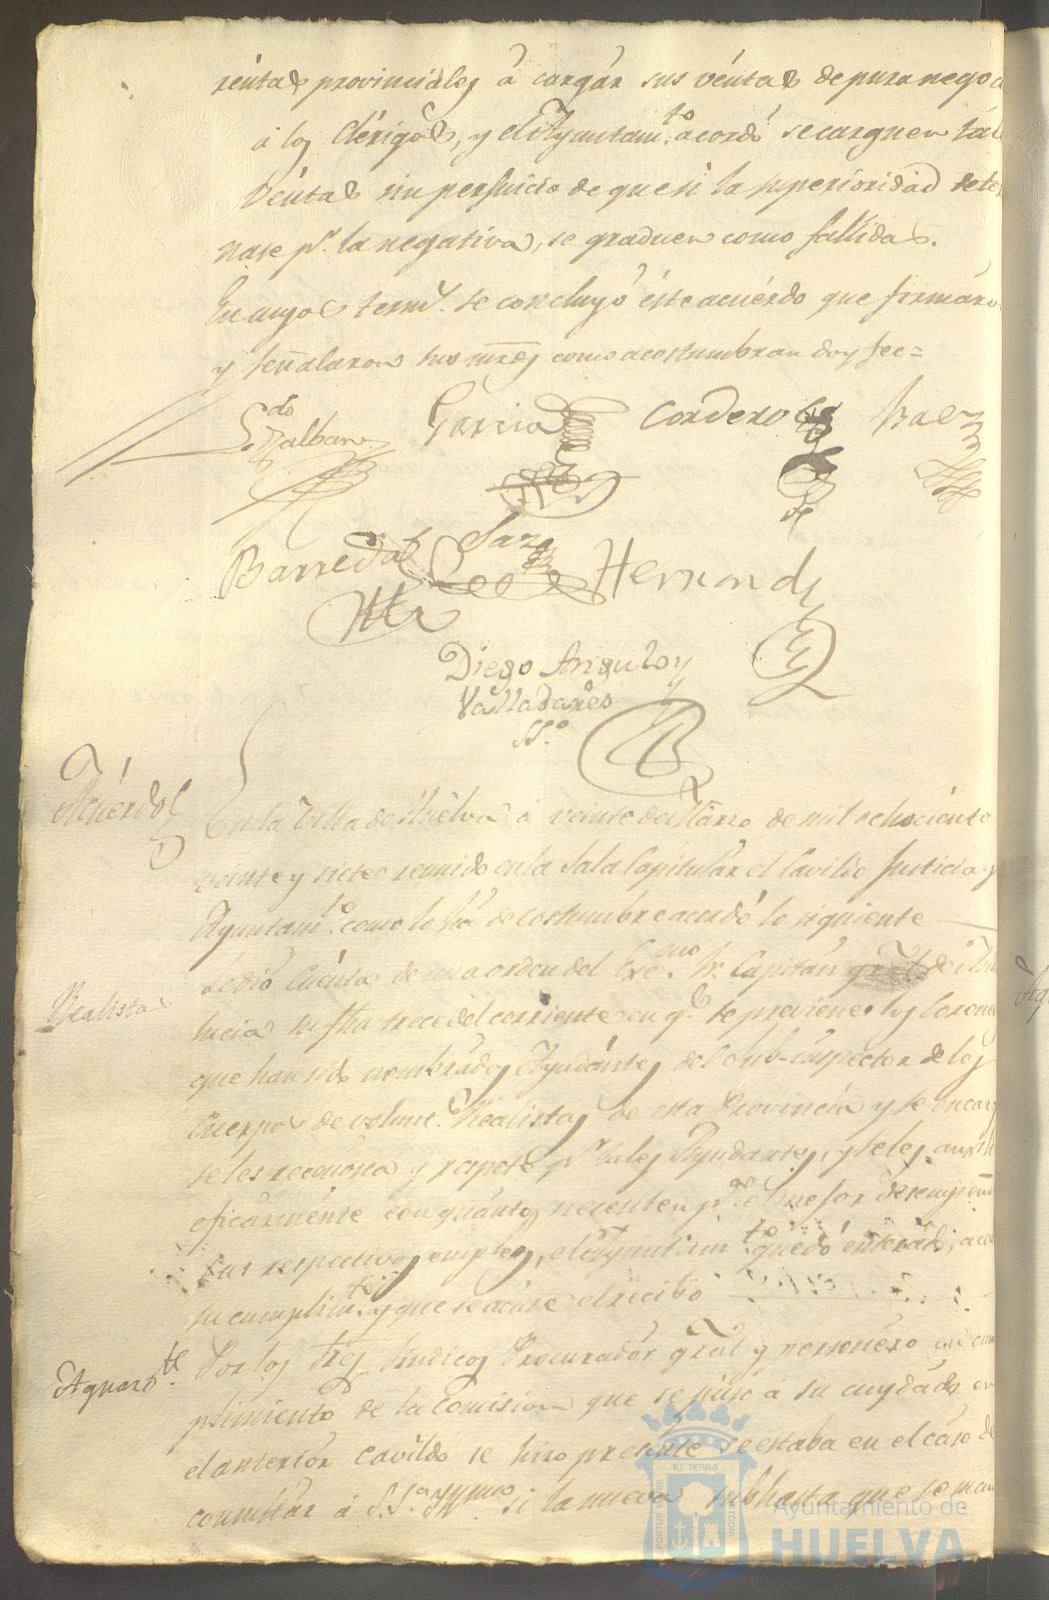 rentas provinciales á cargár sus véntas de pura nego
á los Clérigos, y el Ayuntam.to acordó se carguen tál
Véntas sin perjuicio de que si la superioridad dete
nase p.r la negativa, se graduen como fallidas.
En cuyos term.s se concluyó éste acuérdo que firmáro
y señalaron sus mrds como acostumbran doy fee=
L.do Galban
Garcia
Cordero
Baez
Barreda
Saz
Hernand
Diego Angulo y
Valladares
SS.o
Acuérdo
En la Villa de Huelva á veinte de Márzo de mil ochociénto
veinte y siete reunido en la Sala Capitulár el Cavildo Justicia y
Ayuntam.to como lo há de costumbre acordó lo siguiente
Realistas
Se dió Cuénta de una orden del Exc.mo Sr. Capitán grâl de Anda
lucia su fha trece del corriente en q.e se previene los Corone
que han sido nombrados Ayudántes del Sub-inspector de los
Cuerpos de volunt.s Realistas de esta Provincia y se encar
se les reconosca y respete p.r tales Ayudantes, y se les auxili
eficazménte con quántos necesiten p.a el mejor desempeño
sus respectivos empleos, el Ayuntam.to quedó enterado, acor
su cumplim.to y que se acúse el recibo
Aguard.te
Por los Sres. Sindicos Procuradór grâl y personéro en cum
plimiento de la Comision que se púso a su cuydado en
el anteriór cavildo se hizo presénte se estaba en el cáso de
consultar á S.S.a Yll.ma si la nueva subhasta que se man
Ag
PORTUS MARIS ET TERRÆ CUSTODIA
Ayuntamiento de
HUELVA